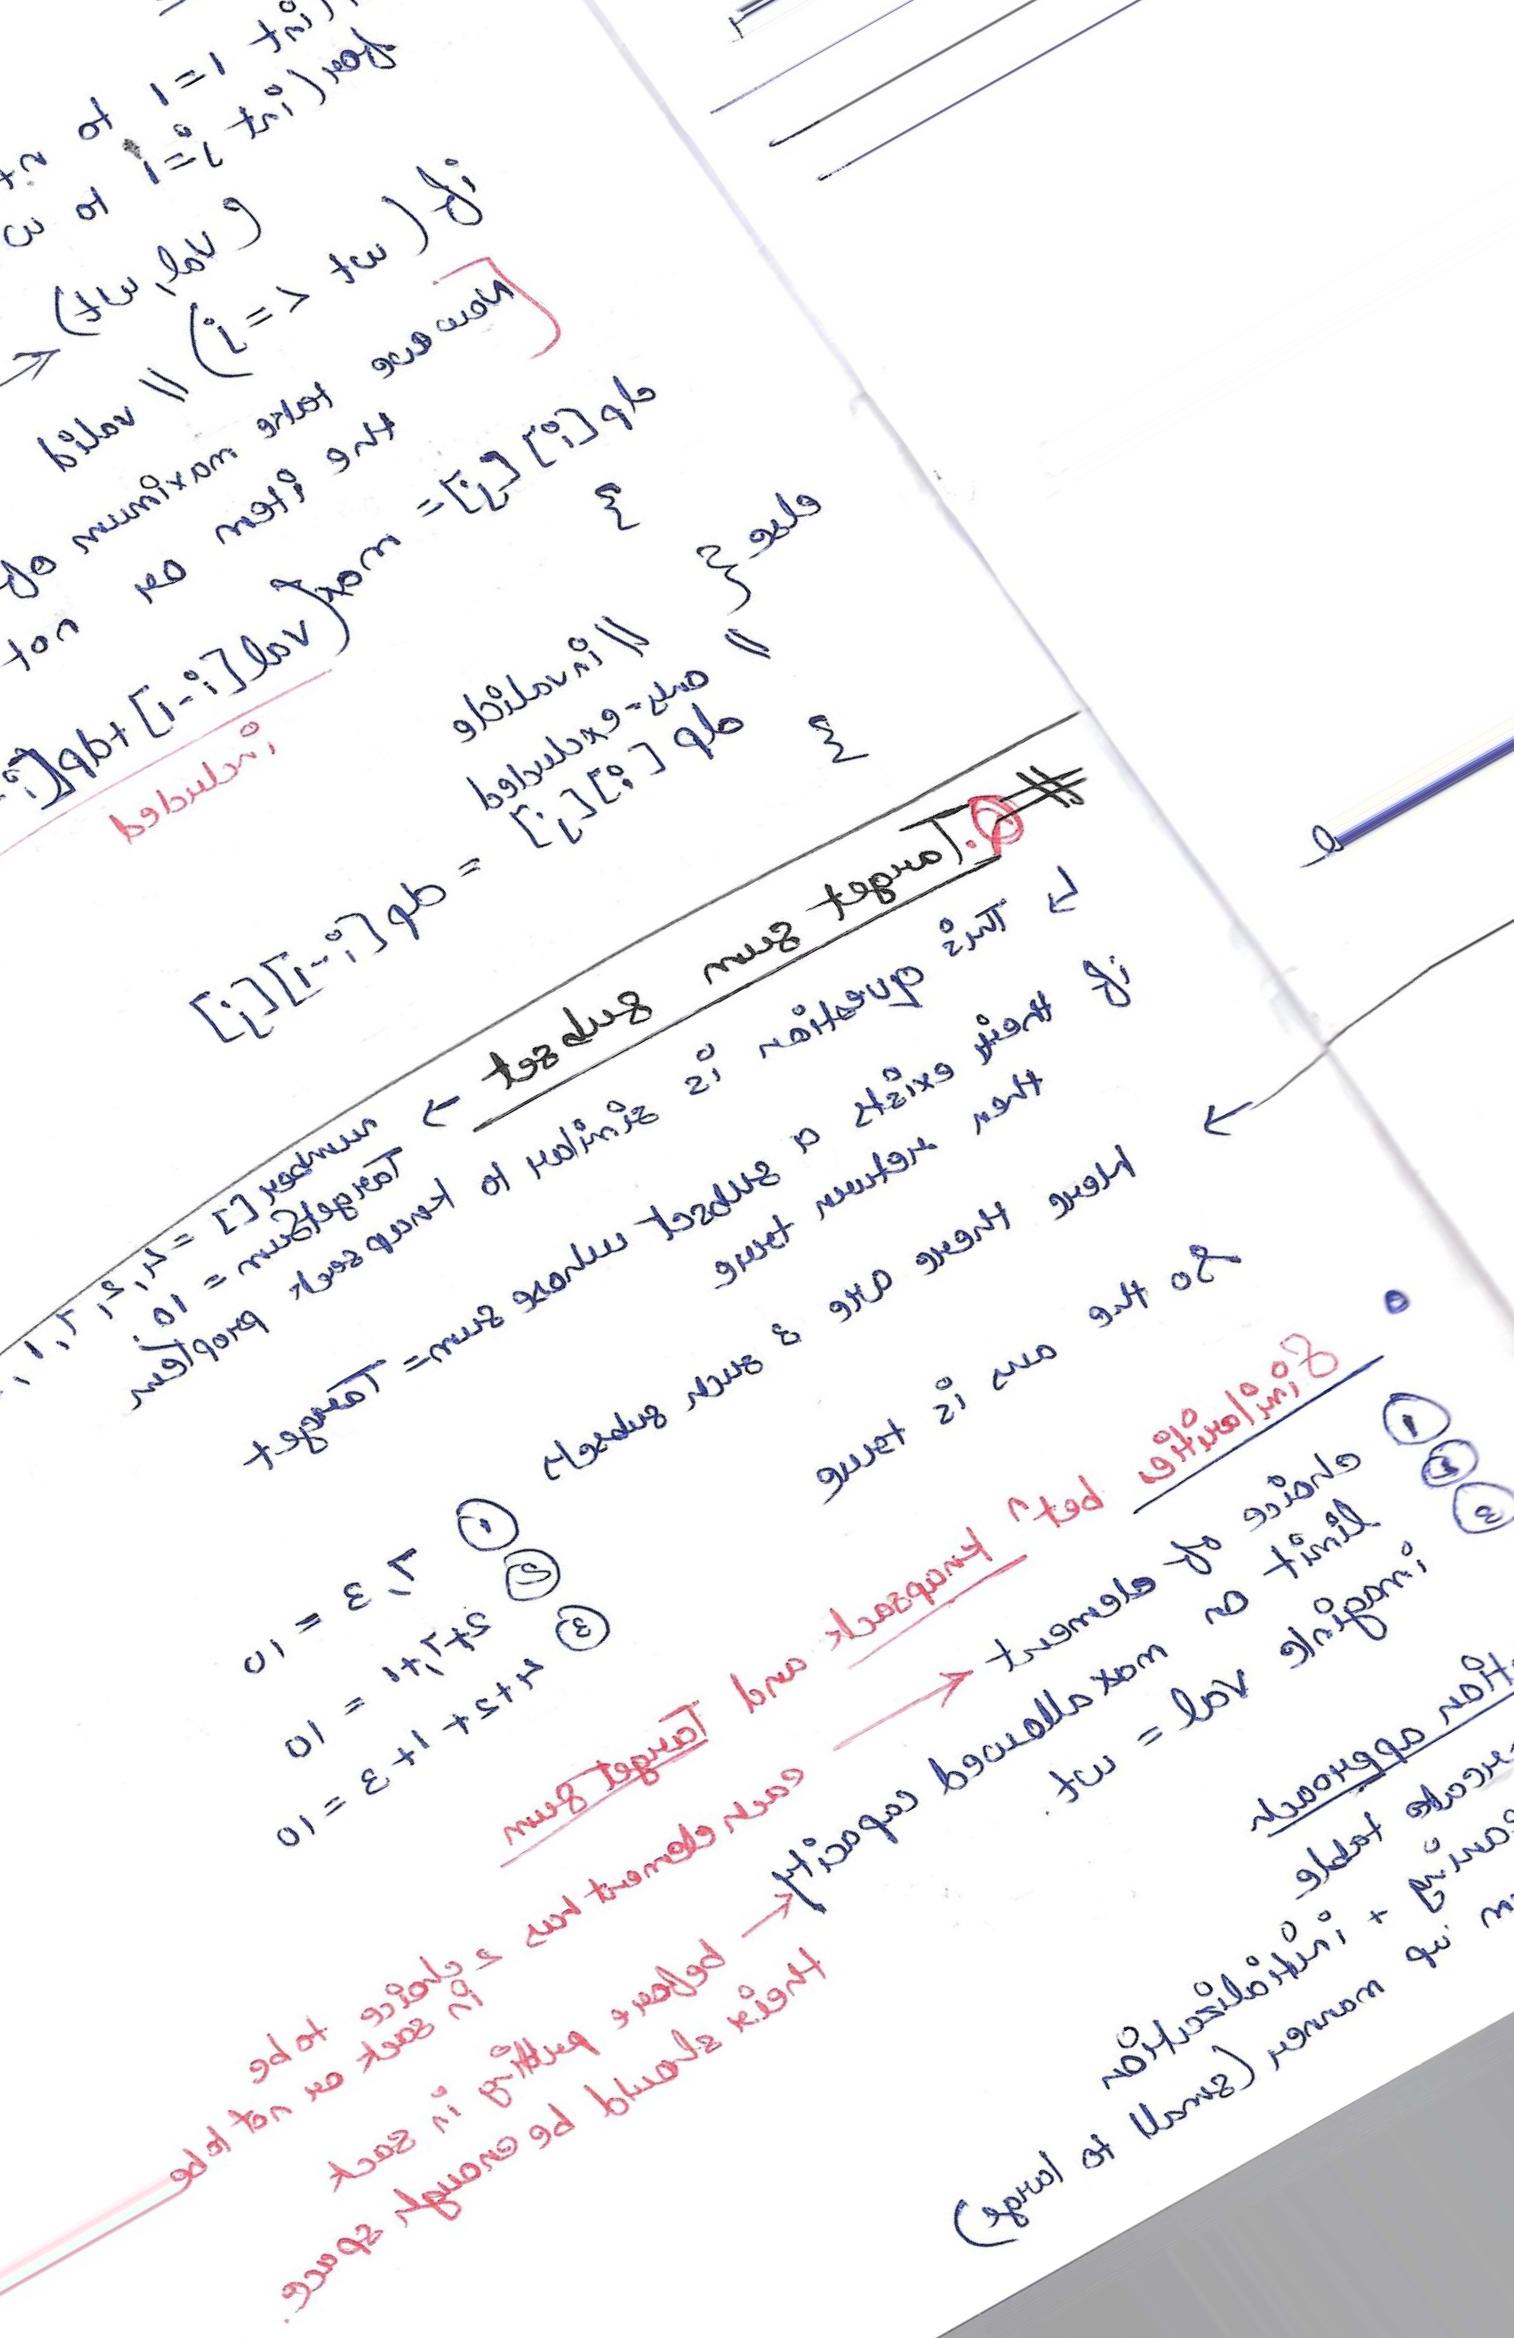 (int i=1 to n+
for(int j=1 to w
(val, wt)
if (wt <= j) // valid
Now we take maximum of
the item or not
dp[i][j] = max(val[i-1]+dp[i-
included
}
else {
// invalid
ans-excluded
dp[i][j] = dp[i-1][j]
}
# Q. Target sum subset → number[] = 4,2,7,1,
Targetsum = 10.
→ This question is similar to knapsack problem
if their exists a subset whose sum = Target
then return true
→ Here there are 3 such subsets
① 7,3 = 10
② 2+7+1 = 10
③ 4+2+1+3 = 10
So the ans is true
• Similarities betn knapsack and Target sum
① choice of element → each element has 2 choice to be
in sack or not to be
② limit on max allowed capacity → before putting in sack
their should be enough space.
③ imagine val = wt.
tion approach
create table
eaning + initialization
in manner (small to large)